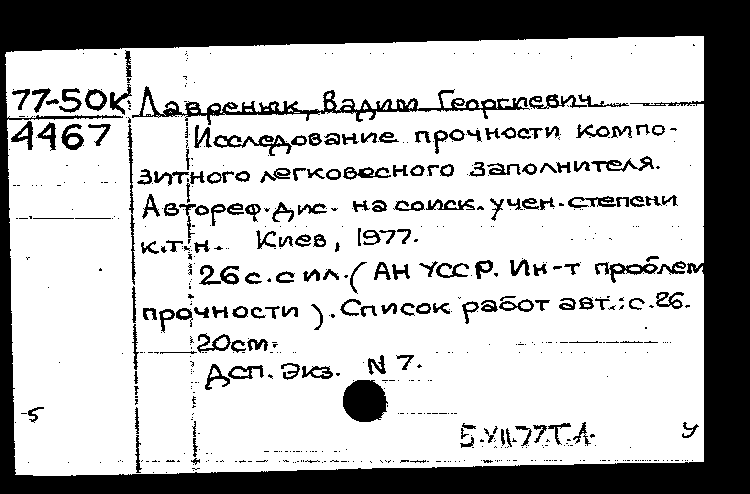 77-50к Лавренюк, Вадим Георгиевич.
4467 Исследование прочности компо-
зитного легковесного заполнителя.
Автореф. дис. на соиск. учен. степени
к.т.н. Киев, 1977.
26 с. с ил. (АН УССР. Ин-т проблем
прочности). Список работ авт.: с.26.
20см.
Дсп. Экз. N 7.
5
5.VII.77.Т.Л. У